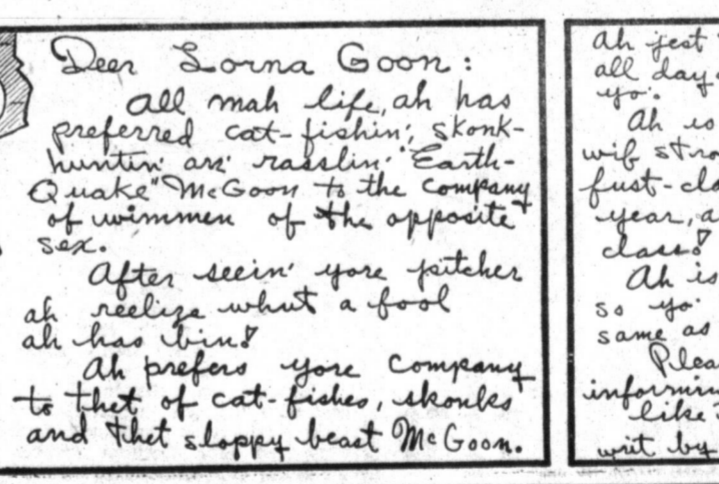 Deer Lorna Goon:
All mah life, ah has
preferred cat-fishin', skonk-
huntin' an' rasslin' "Earth-
Quake" McGoon to the company
of wimmen of the opposite
sex.
After seein' yore pitcher
ah reelize whut a fool
ah has bin!
Ah prefers yore company
to thet of cat-fishes, skonks
and thet sloppy beast McGoon.
Ah jest
all day
yo'.
Ah is
wif stro
fust-cla
year, a
class!
Ah is
so yo'
same as
Plea
informin
like
writ by